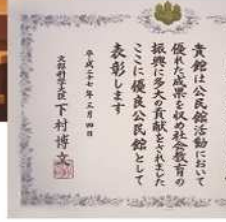 貴館は公民館活動において
優れた成果を収め社会教育の
振興に多大の貢献をされました
ここに優良公民館として
表彰します
平成二十七年三月四日
文部科学大臣 下村博文